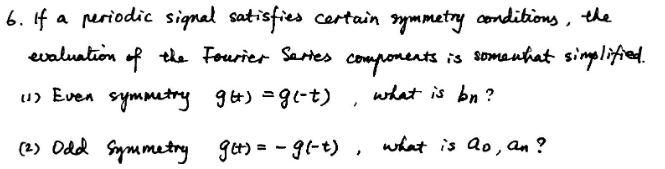 6. If a periodic signal satisfies certain symmetry conditions, the
evaluation of the Fourier Series components is somewhat simplified.
(1) Even symmetry g(t) = g(-t) , what is bn ?
(2) Odd Symmetry g(t) = - g(-t) , what is a0, an ?